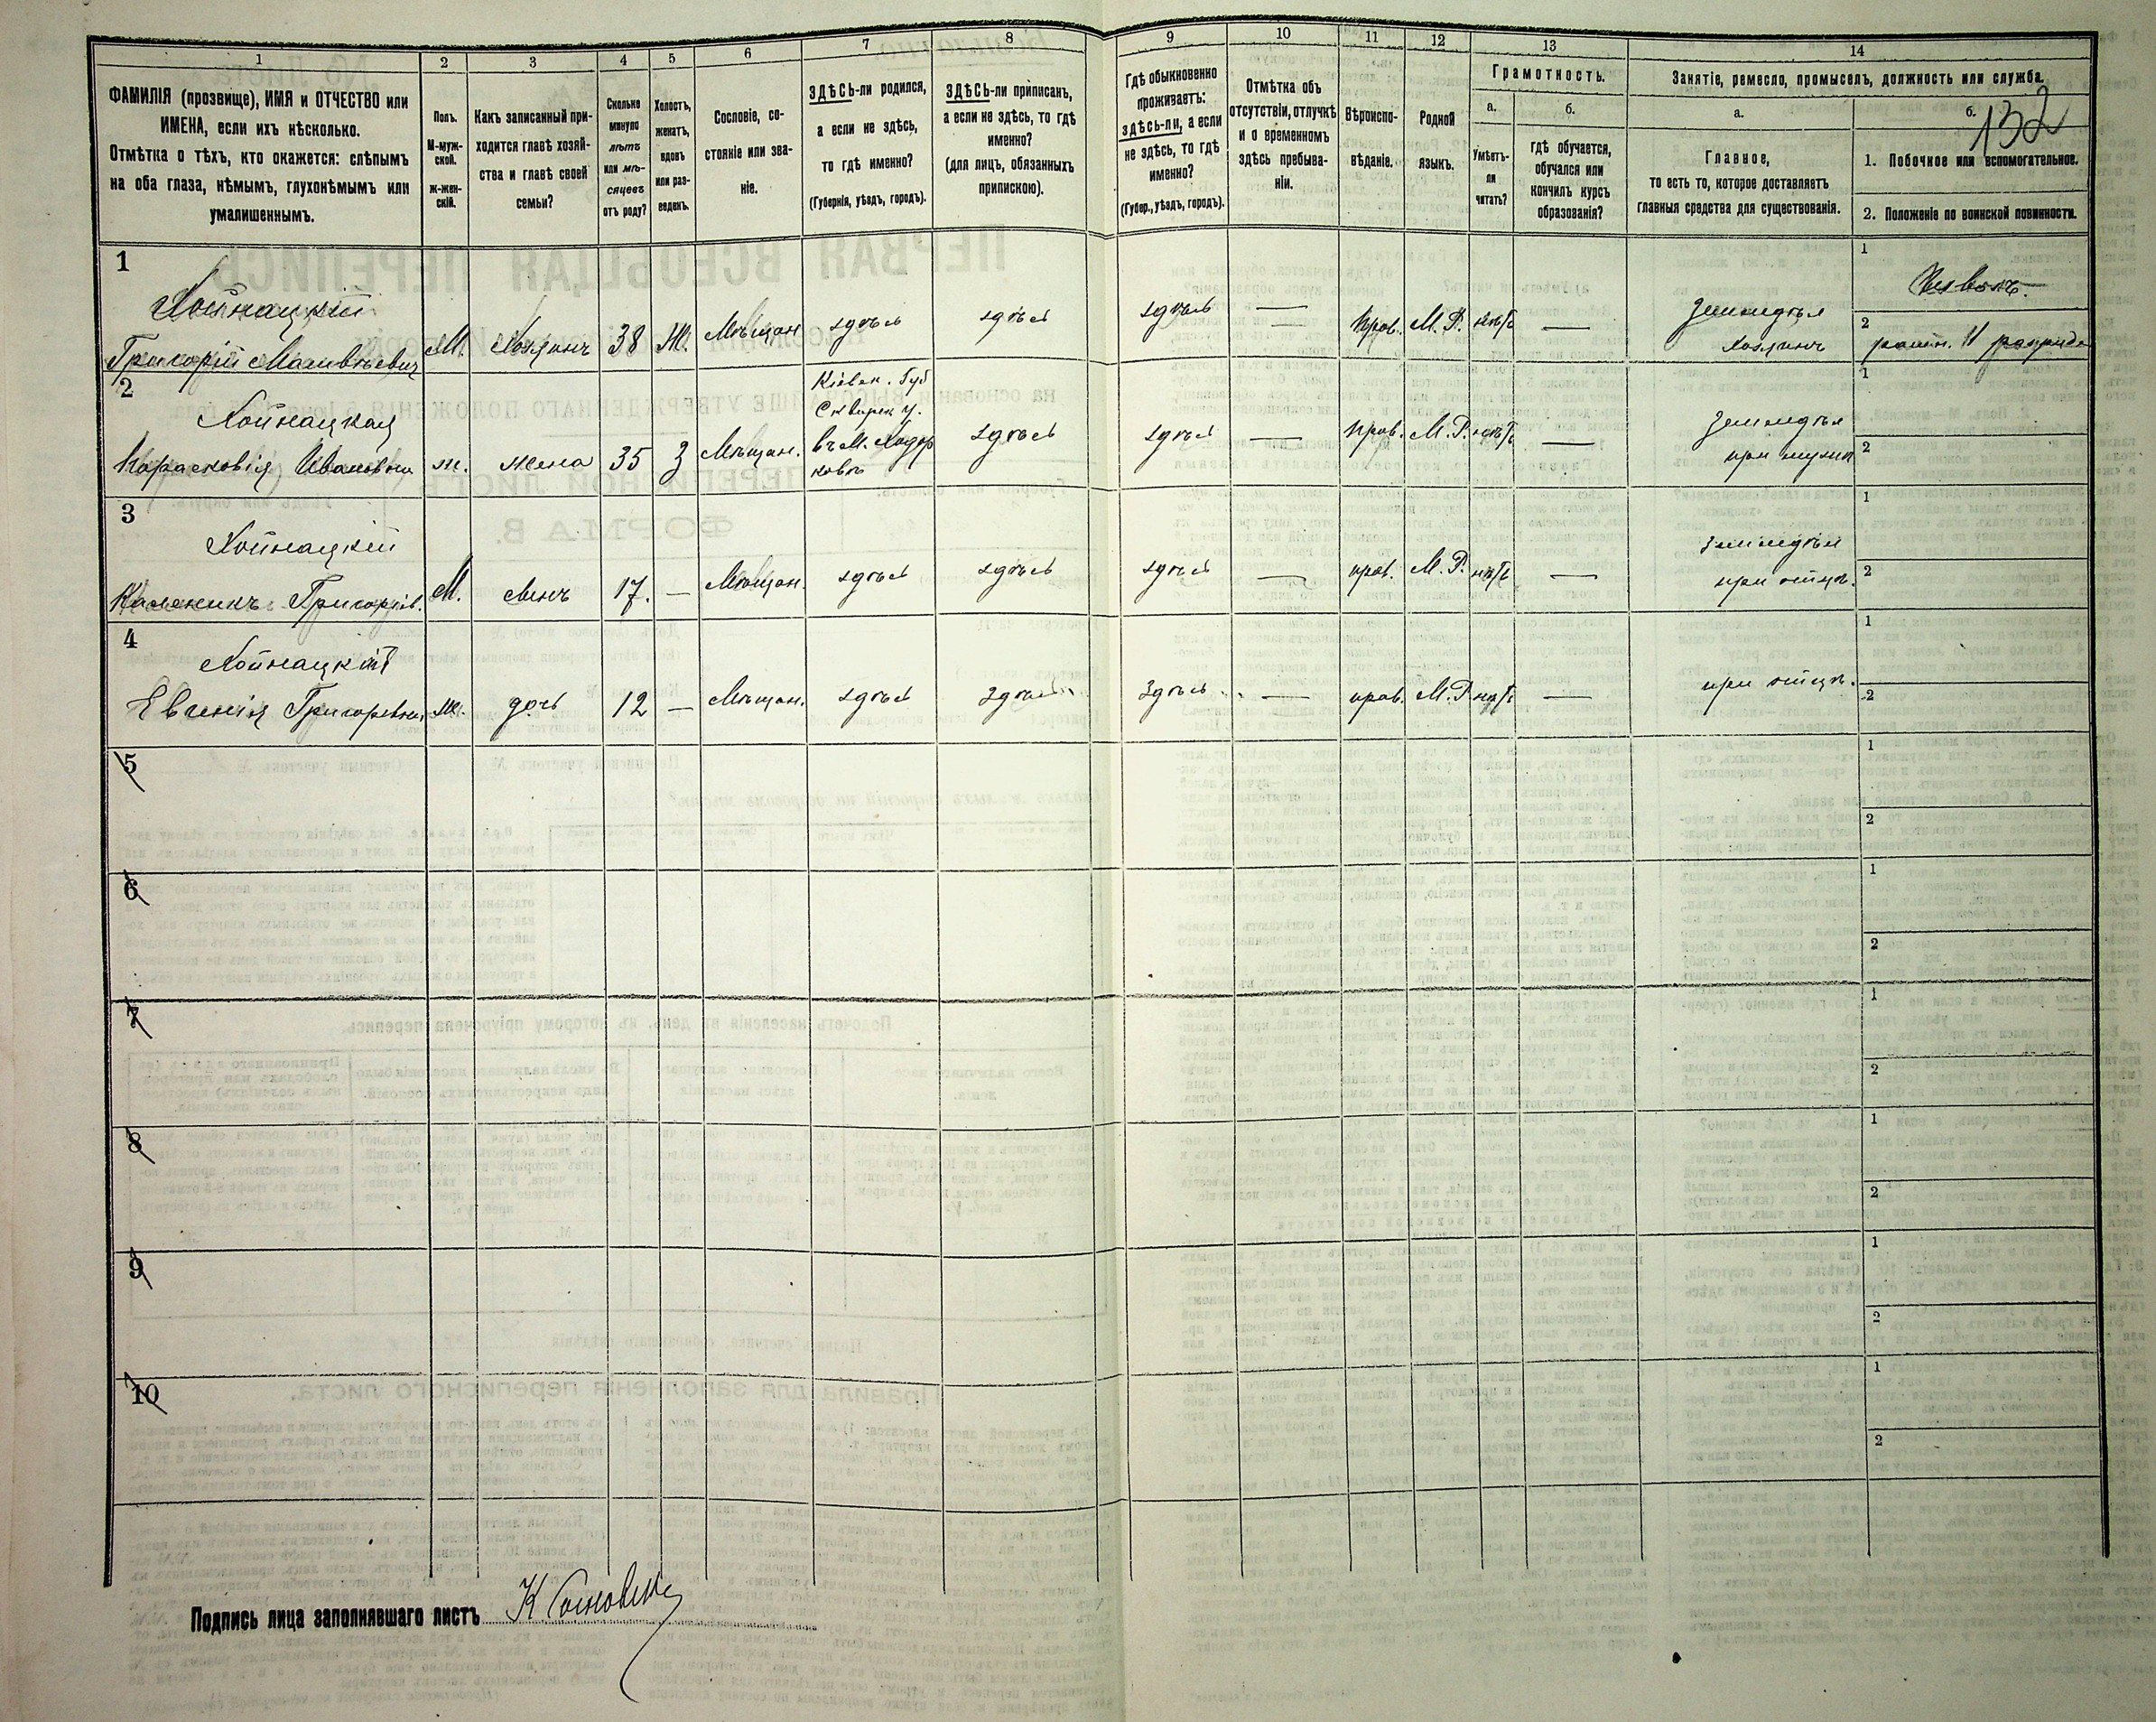 1 2 3 4 5 6 7 8 9 10 11 12 13 14
ФАМИЛІЯ (прозвище), ИМЯ и ОТЧЕСТВО или
ИМЕНА, если ихъ нѣсколько.
Отмѣтка о тѣхъ, кто окажется: слѣпымъ
на оба глаза, нѣмымъ, глухонѣмымъ или
умалишеннымъ.
Полъ.
М-муж-
ской.
ж-жен-
скій.
Какъ записанный при-
ходится главѣ хозяй-
ства и главѣ своей
семьи?
Сколько
минуло
лѣтъ
или мѣ-
сяцевъ
отъ роду?
Холостъ,
женатъ,
вдовъ
или раз-
веденъ.
Сословіе, со-
стояніе или зва-
ніе.
ЗДѢСЬ-ли родился,
а если не здѣсь,
то гдѣ именно?
(Губернія, уѣздъ, городъ).
ЗДѢСЬ-ли приписанъ,
а если не здѣсь, то гдѣ
именно?
(для лицъ, обязанныхъ
припискою).
Гдѣ обыкновенно
проживаетъ:
здѣсь-ли, а если
не здѣсь, то гдѣ
именно?
(Губер., уѣздъ, городъ).
Отмѣтка объ
отсутствіи, отлучкѣ
и о временномъ
здѣсь пребыва-
ніи.
Вѣроиспо-
вѣданіе.
Родной
языкъ.
Грамотность.
а.
Умѣетъ-
ли
читать?
б.
гдѣ обучается,
обучался или
кончилъ курсъ
образованія?
Занятіе, ремесло, промыселъ, должность или служба.
а.
Главное,
то есть то, которое доставляетъ
главныя средства для существованія.
б.
132
1. Побочное или вспомогательное.
2. Положеніе по воинской повинности.
1
Хойнацкій
Григорій Матвѣевичъ
М. Хозяинъ 38 Ж. Мѣщан. здѣсь здѣсь здѣсь — прав. М. Р. нѣтъ —
Земледѣл
хозяинъ
1
2
ратн. II разряда
2
Хойнацкая
Парасковія Ивановна
ж. жена 35 З Мѣщан.
Кіевск. Губ
Сквирск у.
въ м. Ходор
ковѣ
здѣсь здѣсь — прав. М. Р. нѣтъ —
Земледѣл
при мужѣ
1
2
3
Хойнацкій
Каленикъ Григорьев.
М. сынъ 17. — Мѣщан. здѣсь здѣсь здѣсь — прав. М. Р. нѣтъ —
Земледѣл
при отцѣ.
1
2
4
Хойнацкая
Евгенія Григорьевна
ж. дочь 12 — Мѣщан. здѣсь здѣсь здѣсь — прав. М. Р. нѣтъ —
при отцѣ.
1
2
5
1
2
6
1
2
7
1
2
8
1
2
9
1
2
10
1
2
Подпись лица заполнявшаго листъ